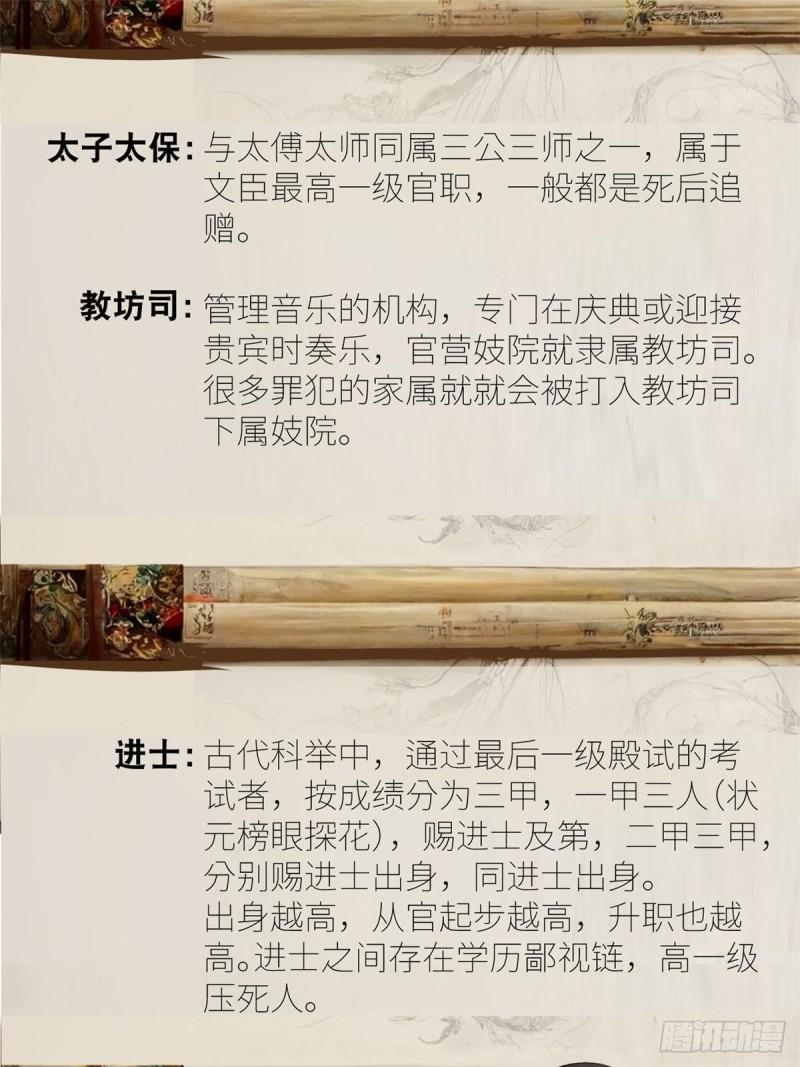 太子太保：与太傅太师同属三公三师之一，属于
文臣最高一级官职，一般都是死后追
赠。
教坊司：管理音乐的机构，专门在庆典或迎接
贵宾时奏乐，官营妓院就隶属教坊司。
很多罪犯的家属就就会被打入教坊司
下属妓院。
进士：古代科举中，通过最后一级殿试的考
试者，按成绩分为三甲，一甲三人（状
元榜眼探花），赐进士及第，二甲三甲，
分别赐进士出身，同进士出身。
出身越高，从官起步越高，升职也越
高。进士之间存在学历鄙视链，高一级
压死人。
腾讯动漫